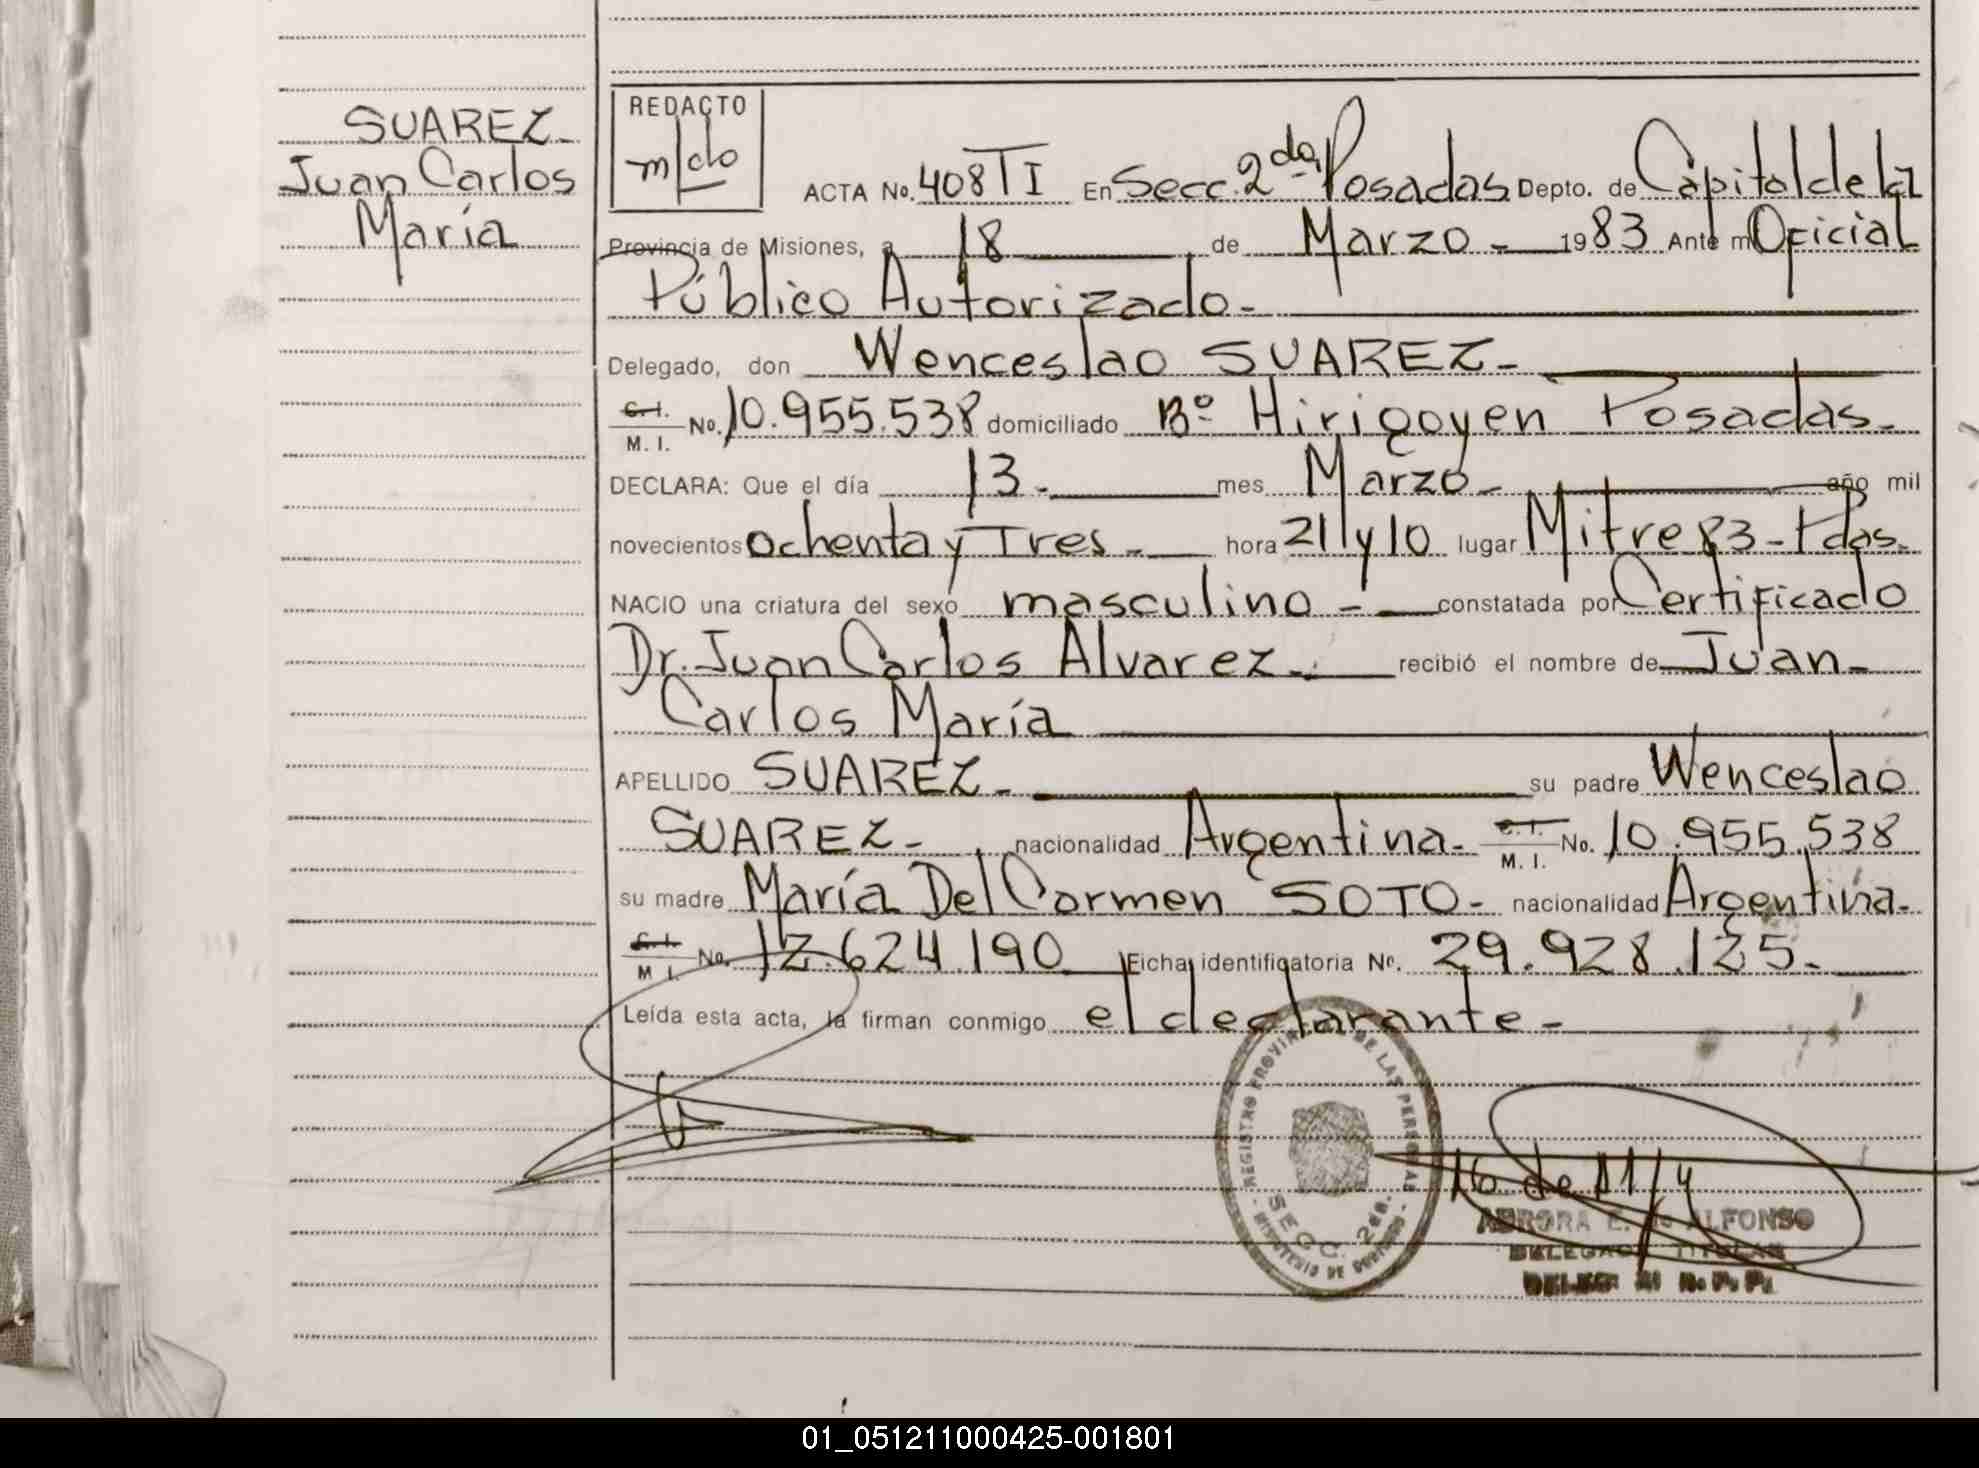 SUAREZ-
Juan Carlos
María
REDACTO
m/do
ACTA No. 408 TI En Secc. 2da Posadas Depto. de Capital de la
Provincia de Misiones, a 18 de Marzo - 1983 Ante mí Oficial
Público Autorizado-
Delegado, don Wenceslao SUAREZ-
C.I. M.I. No. 10.955.538 domiciliado Bº Hirigoyen Posadas-
DECLARA: Que el día 13- mes Marzo- año mil
novecientos ochenta y Tres- hora 21 y 10 lugar Mitre 83-Pdas-
NACIO una criatura del sexo masculino - constatada por Certificado
Dr. Juan Carlos Alvarez- recibió el nombre de Juan-
Carlos María
APELLIDO SUAREZ- su padre Wenceslao
SUAREZ- nacionalidad Argentina- C.I. M.I. No. 10.955.538
su madre María Del Carmen SOTO- nacionalidad Argentina-
C.I. M.I. No. 12.624.190 Ficha identificatoria No. 29.928.125-
Leída esta acta, la firman conmigo el declarante-
REGISTRO PROVINCIAL DE LAS PERSONAS
SECC. 2da.
- MINISTERIO DE GOBIERNO -
16 de 11/4
AURORA E. de ALFONSO
DELEGADA TITULAR
R.P.P.
01_051211000425-001801